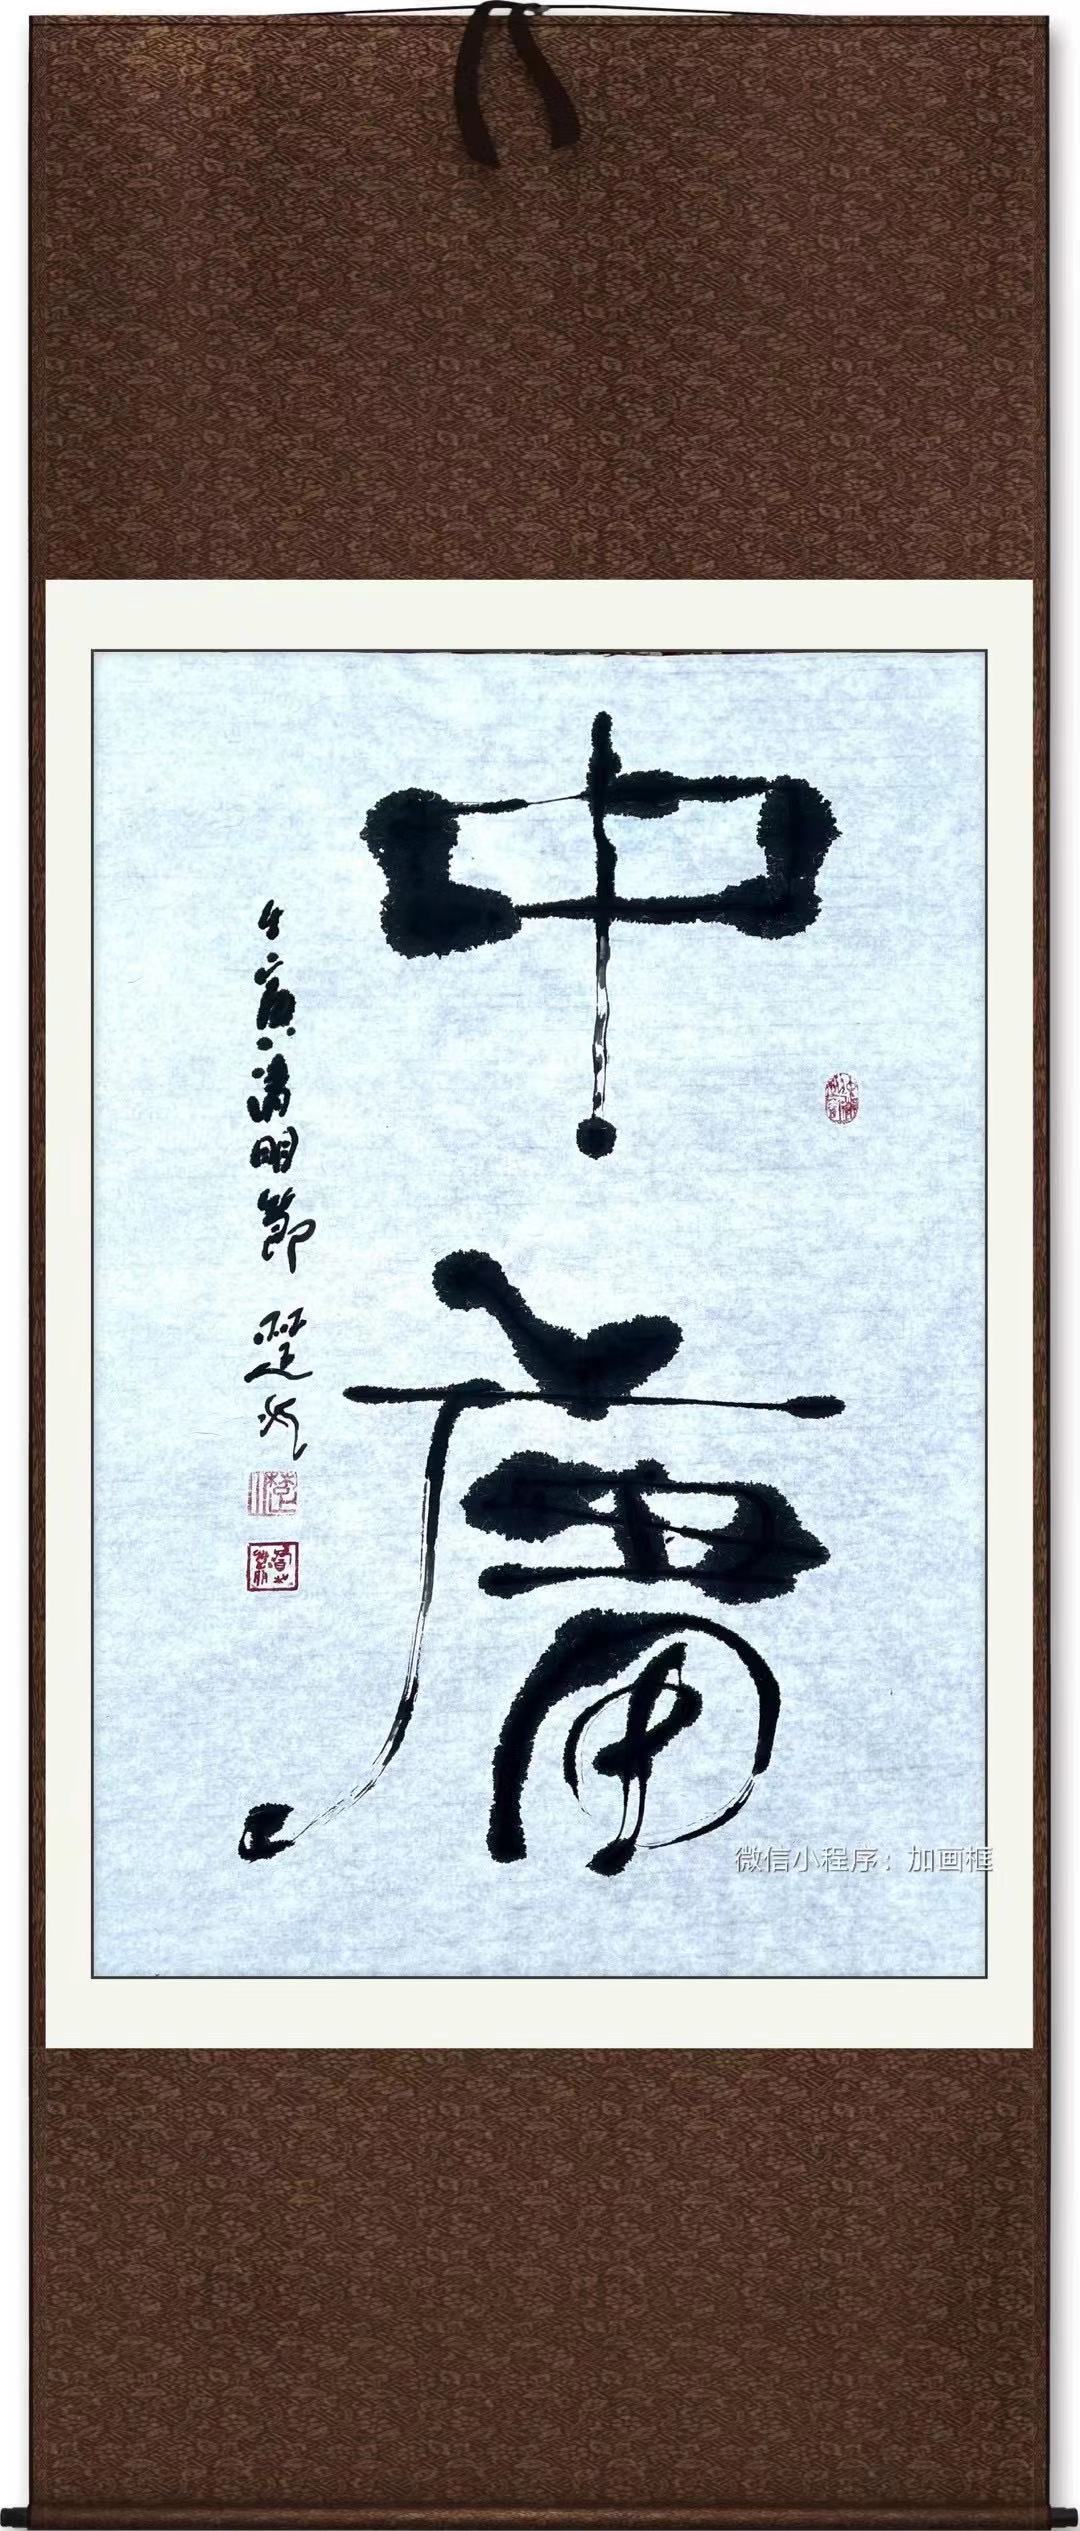 中庸
壬寅清明節 楚
微信小程序：加画框